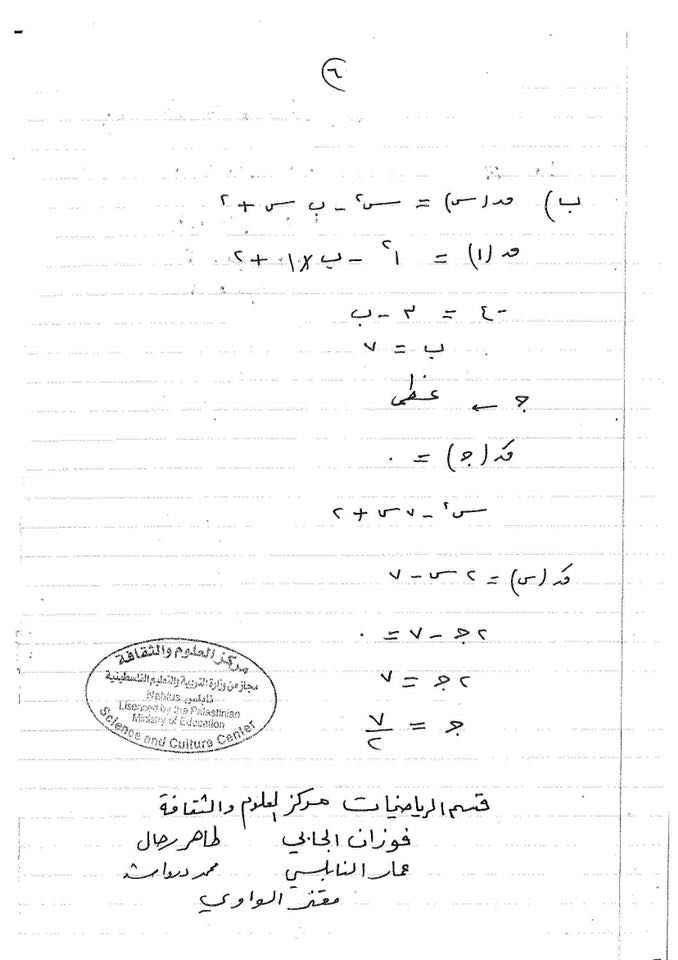 ٦
ب) ق(س) = س٢ - ب س + ٢
ق(١) = ١٢ - ب×١ + ٢
-٤ = ٣ - ب
ب = ٧
جـ ← عظمى
قَ(جـ) = ٠
س٢ - ٧س + ٢
قَ(س) = ٢س - ٧
٢جـ - ٧ = ٠
٢جـ = ٧
جـ = ٧/٢
مركز العلوم والثقافة
مجاز من وزارة التربية والتعليم الفلسطينية
نابلس Nablus
Lisenced by the Palestinian
Ministry of Education
Science and Culture Center
قسم الرياضيات مركز العلوم والثقافة
فوزان الجابي طاهر رحال
عمار النابلسي محمد
معتز الواوي